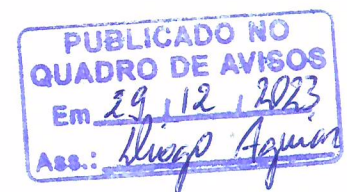 PUBLICADO NO
QUADRO DE AVISOS
Em 29 / 12 / 2023
Ass.: Diogo Aguiar